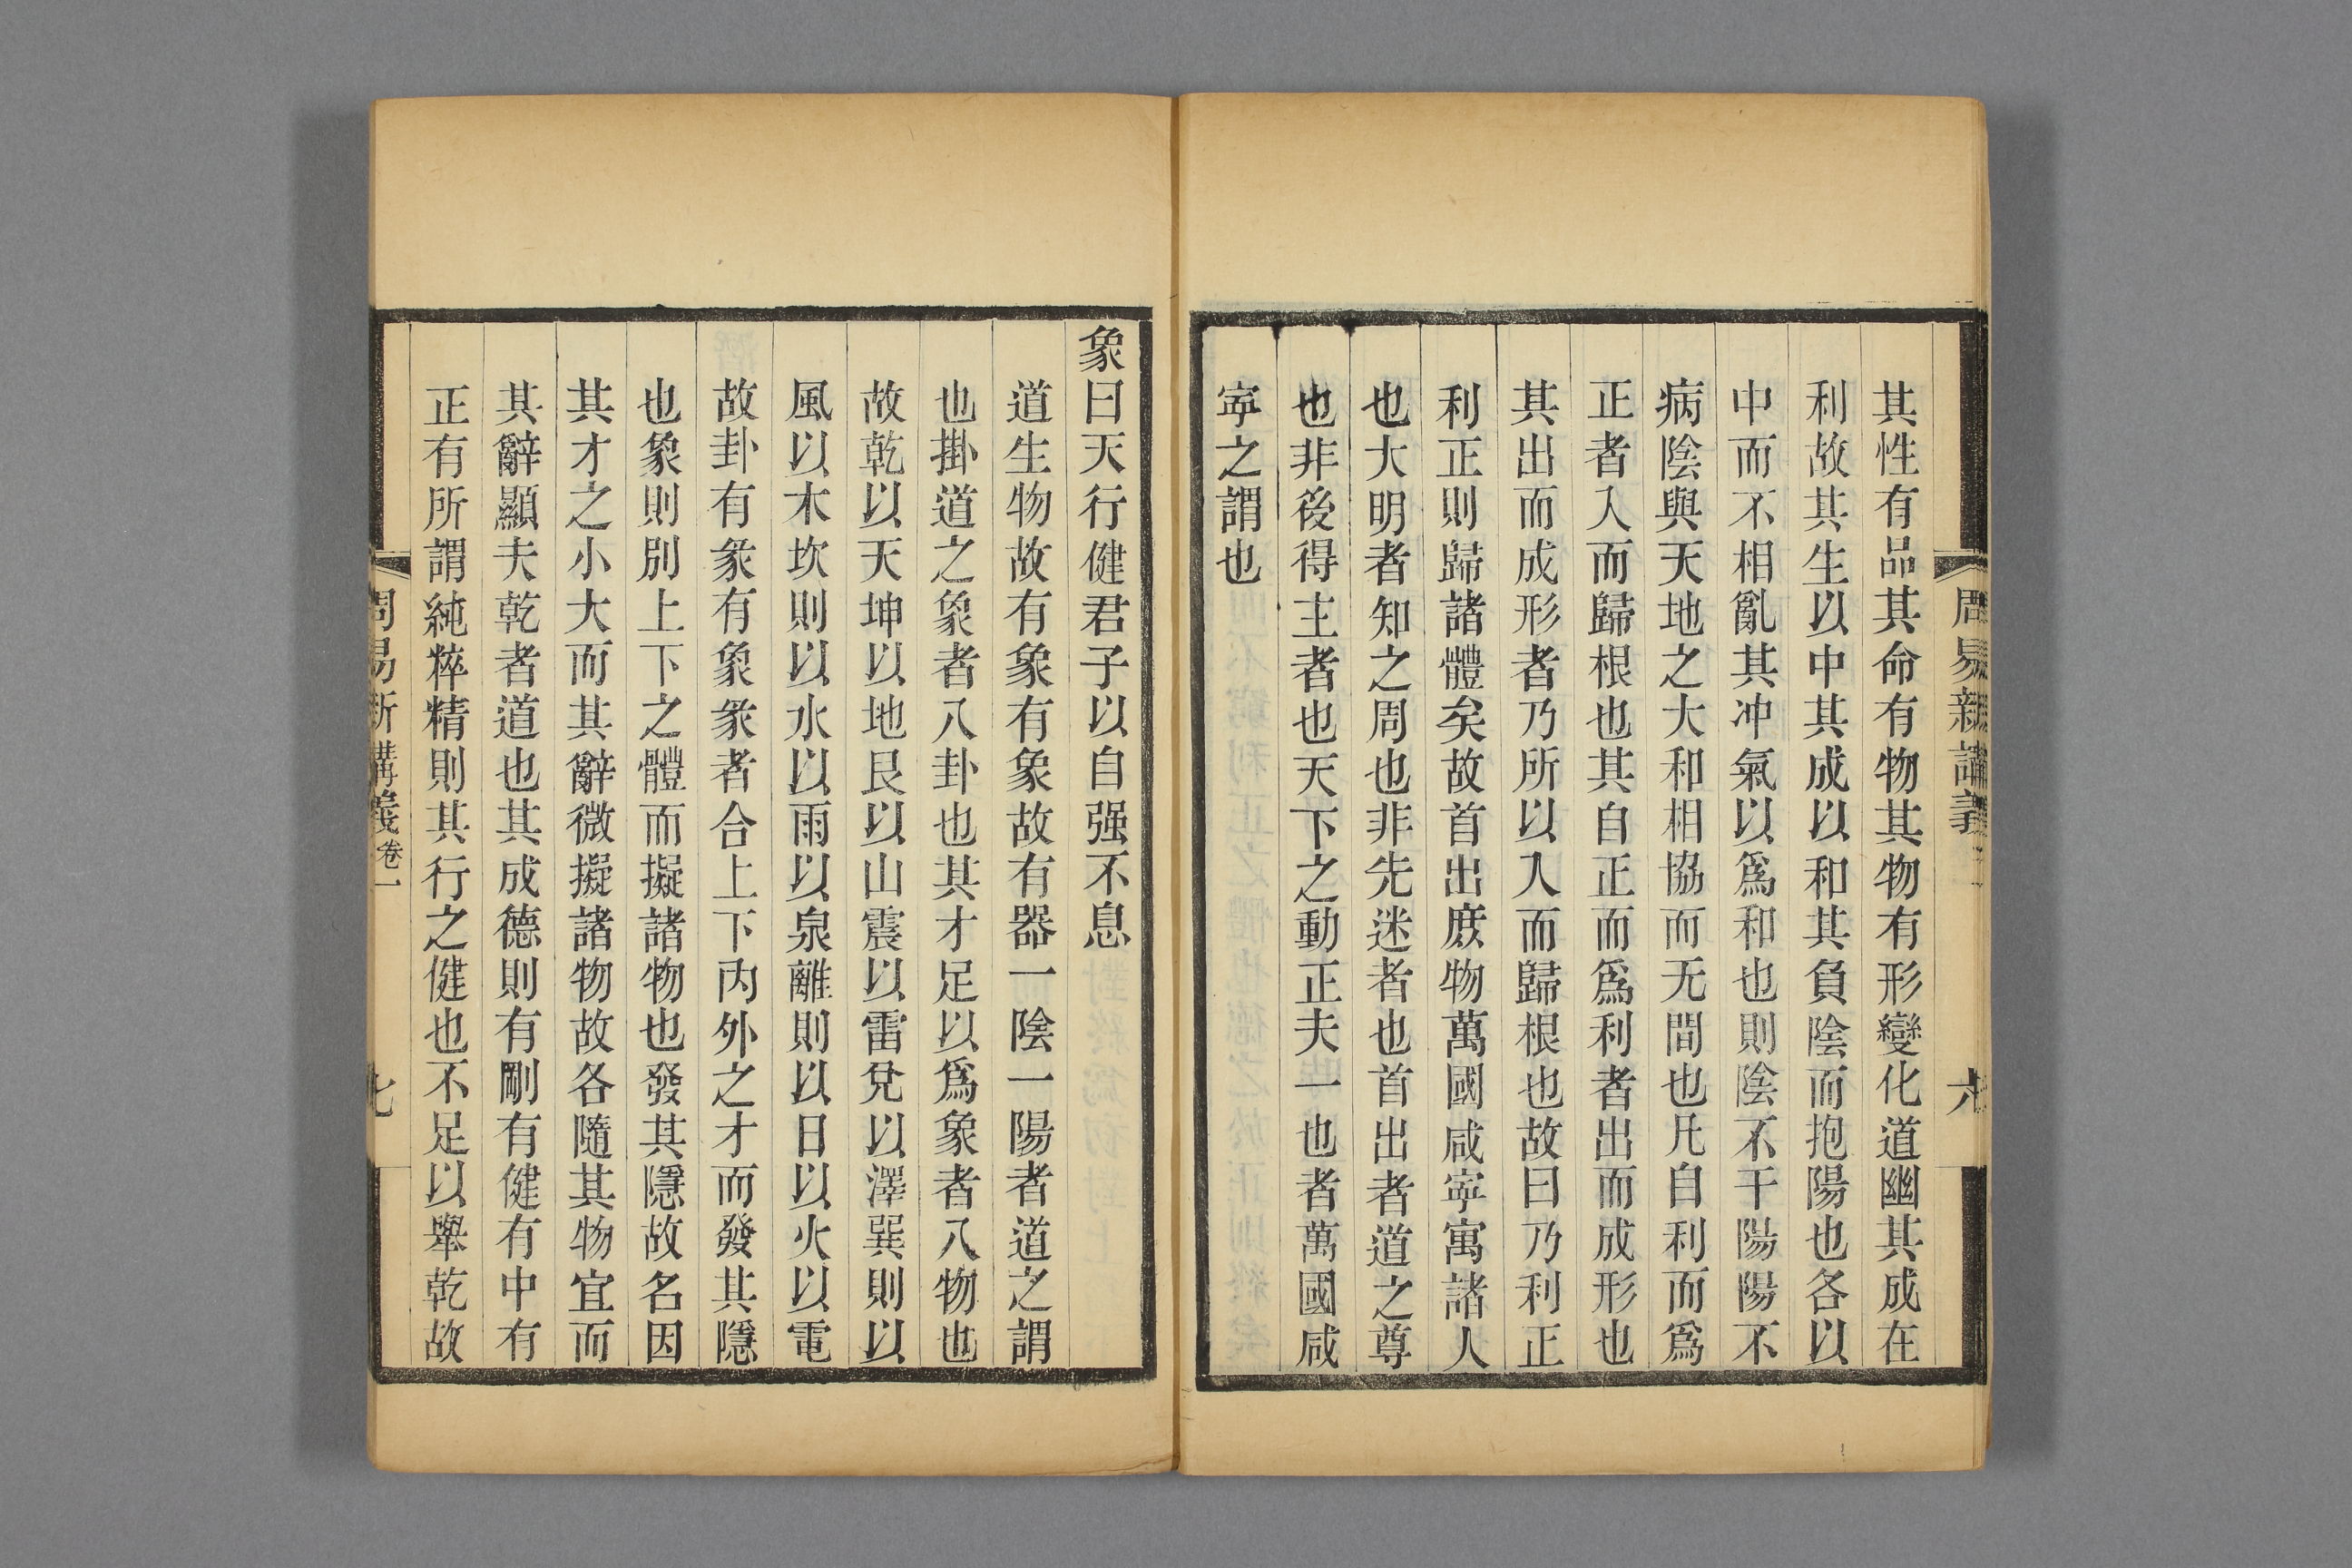 其性有品其命有物其物有形變化道幽其成在
利故其生以中其成以和其負陰而抱陽也各以
中而不相亂其冲氣以爲和也則陰不干陽陽不
病陰與天地之大和相協而无間也凡自利而爲
正者入而歸根也其自正而爲利者出而成形也
其出而成形者乃所以入而歸根也故曰乃利正
利正則歸諸體矣故首出庶物萬國咸寕寓諸人
也大明者知之周也非先迷者也首出者道之尊
也非後得主者也天下之動正夫一也者萬國咸
寕之謂也
周易新講義
六
象曰天行健君子以自强不息
道生物故有象有象故有器一陰一陽者道之謂
也掛道之象者八卦也其才足以爲象者八物也
故乾以天坤以地艮以山震以雷兌以澤巽則以
風以木坎則以水以雨以泉離則以日以火以電
故卦有彖有象彖者合上下內外之才而發其隱
也象則別上下之體而擬諸物也發其隱故名因
其才之小大而其辭微擬諸物故各隨其物宜而
其辭顯夫乾者道也其成德則有剛有健有中有
正有所謂純粹精則其行之健也不足以舉乾故
周易新講義卷一
七